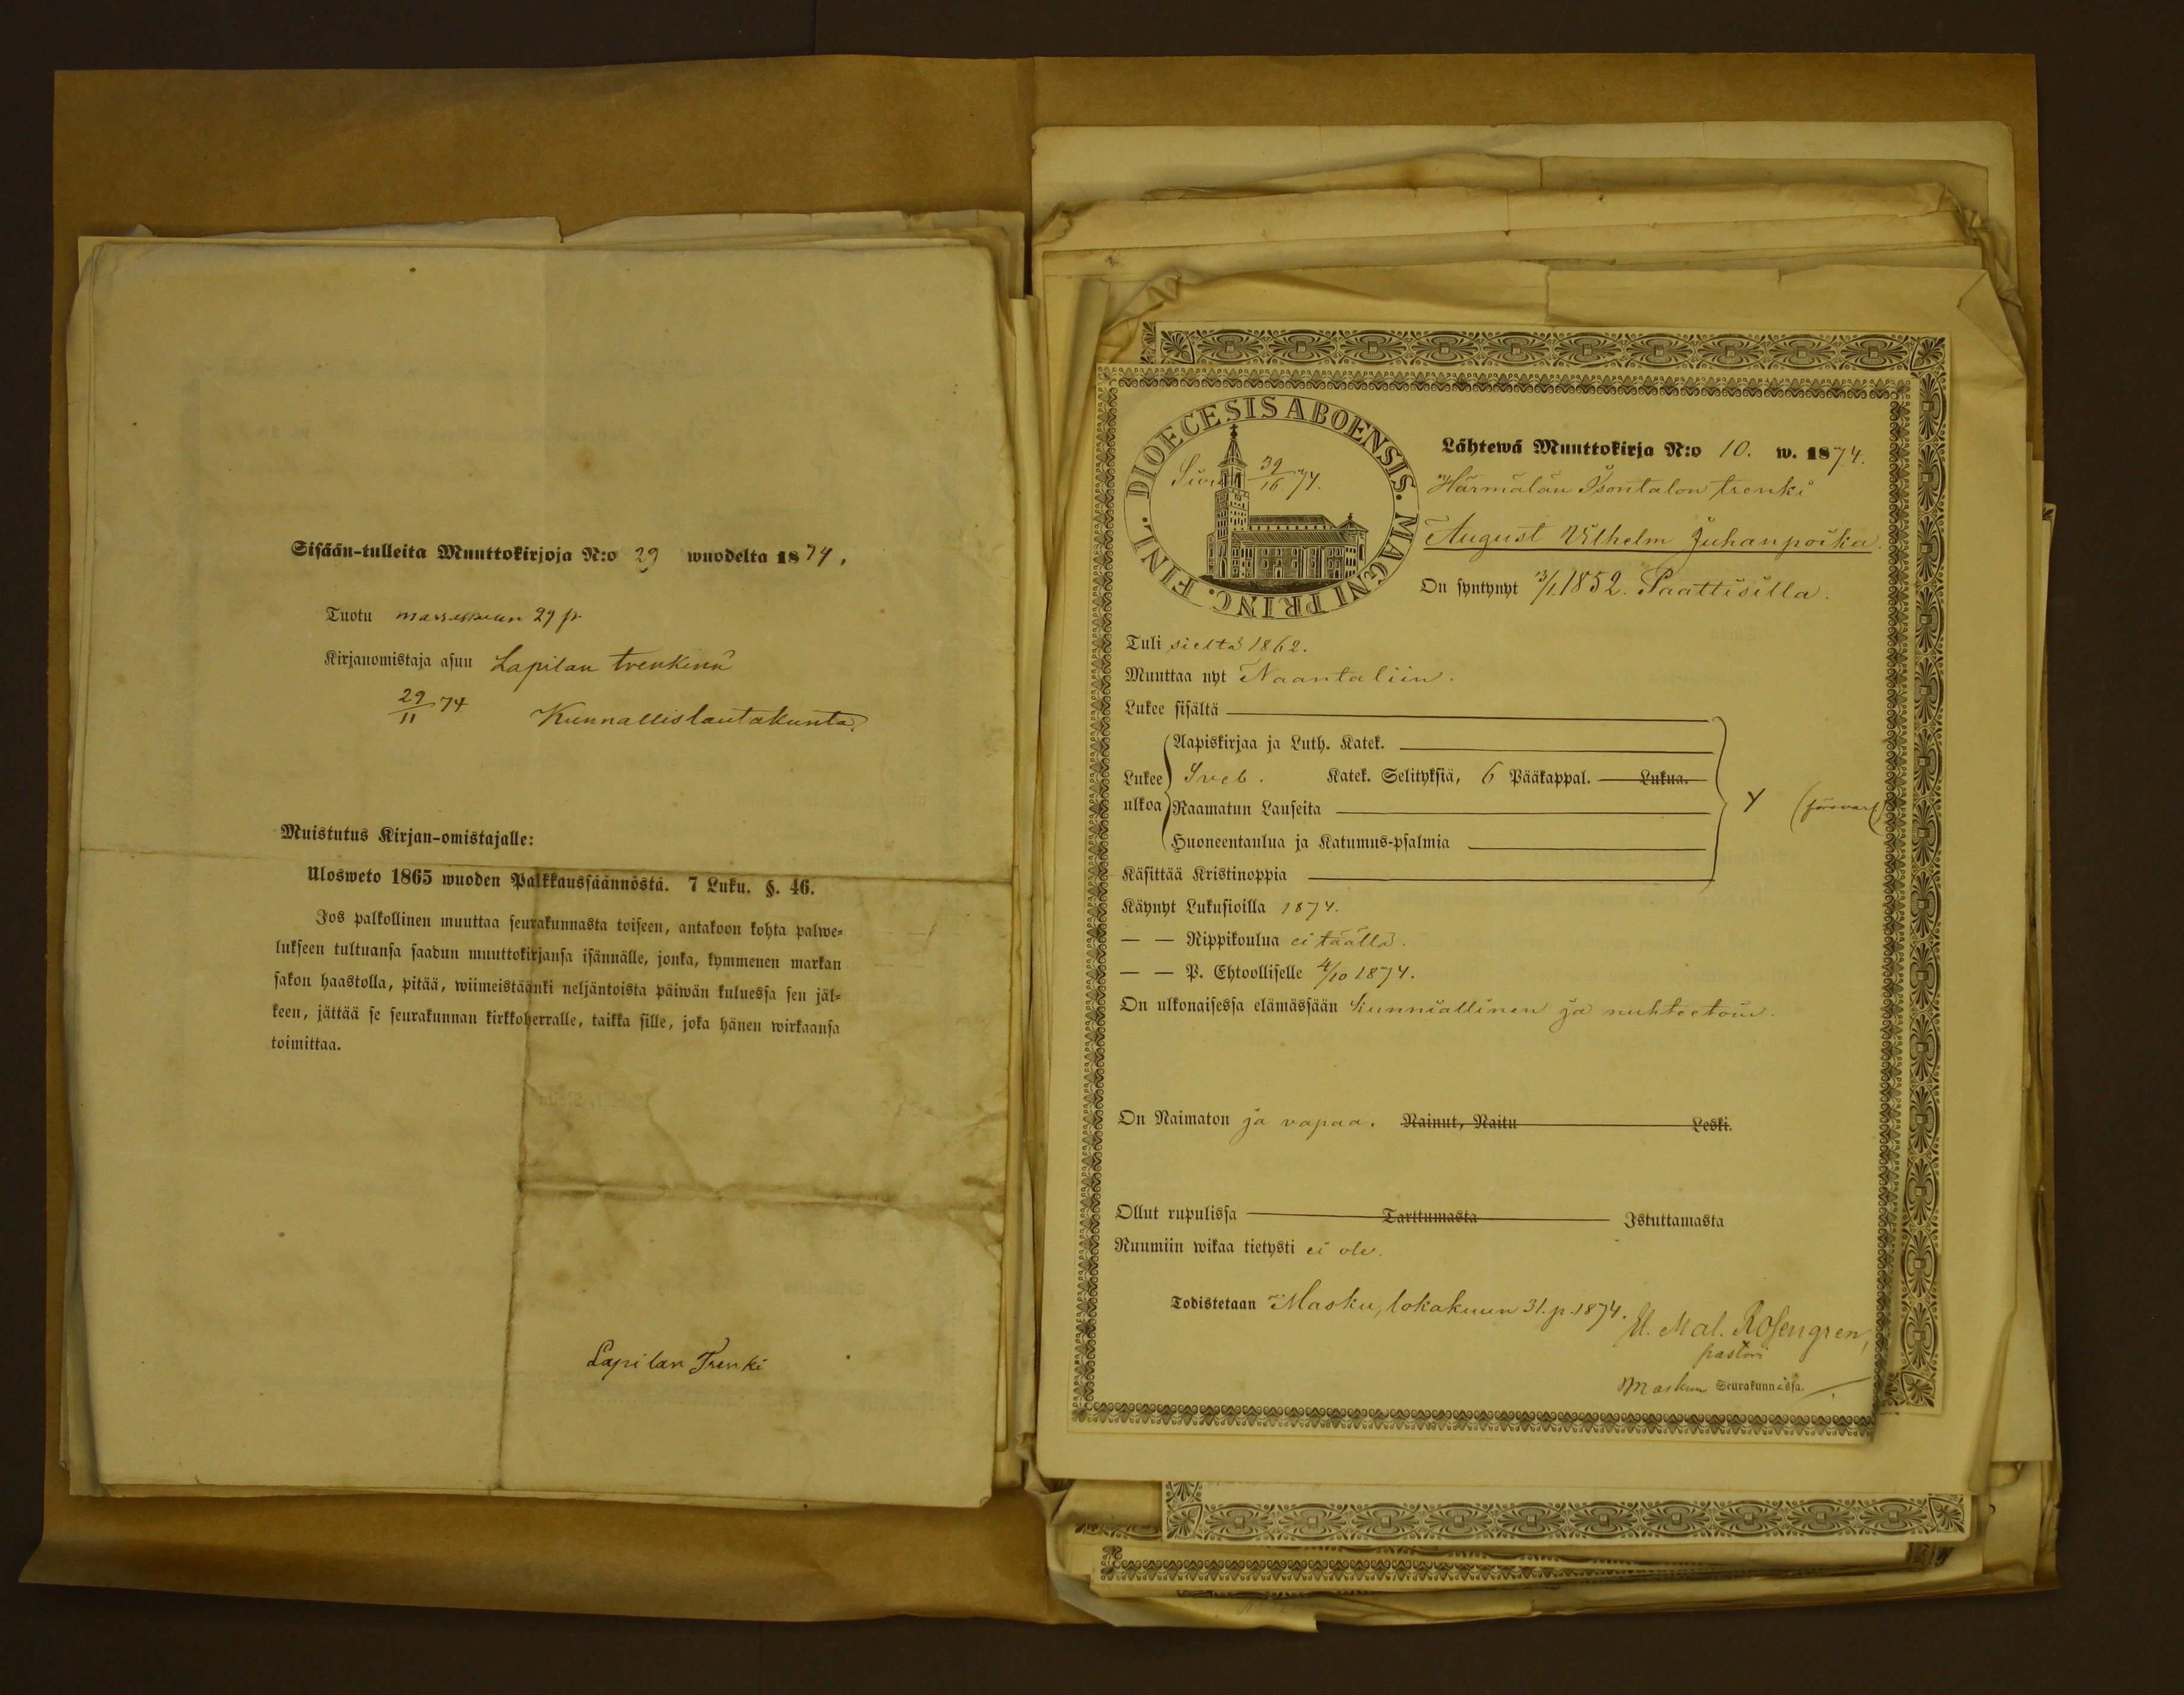 Sisään-tulleita Muuttokirjoja N:o 29 wuodelta 1874.
Tuotu marraskuun 29 p.
Kirjanomistaja asuu Lapilan trenkinä
29/11 74 Kunnallislautakunta.
Muistutus Kirjan-omistajalle:
Ulosweto 1865 wuoden Palkkaussäännöstä. 7 Luku. §. 46.
Jos palkollinen muuttaa seurakunnasta toiseen, antakoon kohta palwe-
lukseen tultuansa saadun muuttokirjansa isännälle, jonka, kymmenen markan
sakon haastolla, pitää, wiimeistäänki neljäntoista päiwän kuluessa sen jäl-
keen, jättää se seurakunnan kirkkoherralle, taikka sille, joka hänen wirkaansa
toimittaa.
Lapilan Trenki
DIOECESIS ABOENSIS. MAGNI PRINC. FINL.
74.
Lähtewä Muuttokirja N:o 10. w. 1874.
Härmälän Isontalon trenki
August Vilhelm Juhanpoika.
On syntynyt 13/1 1852. Paattisilla.
Tuli sieltä 1862.
Muuttaa nyt Naantaliin.
Lukee sisältä
Lukee ulkoa
Aapiskirjaa ja Luth. Katek.
Sveb. Katek. Selityksiä, 6 Pääkappal. Lukua.
Raamatun Lauseita
Huoneentaulua ja Katumus-psalmia
Käsittää Kristinoppia
Käynyt Lukusioilla 1874.
— — Rippikoulua ei täällä.
— — P. Ehtoolliselle 4/10 1874.
On ulkonaisessa elämässään kunniallinen ja nuhteetoin.
On Naimaton ja vapaa. Nainut, Naitu Leski.
Ollut rupulissa Tarttumasta Istuttamasta
Ruumiin wikaa tietysti ei ole.
Todistetaan Masku, lokakuun 31. p. 1874.
Mal. Rosengren,
pastori
Maskun Seurakunnassa.